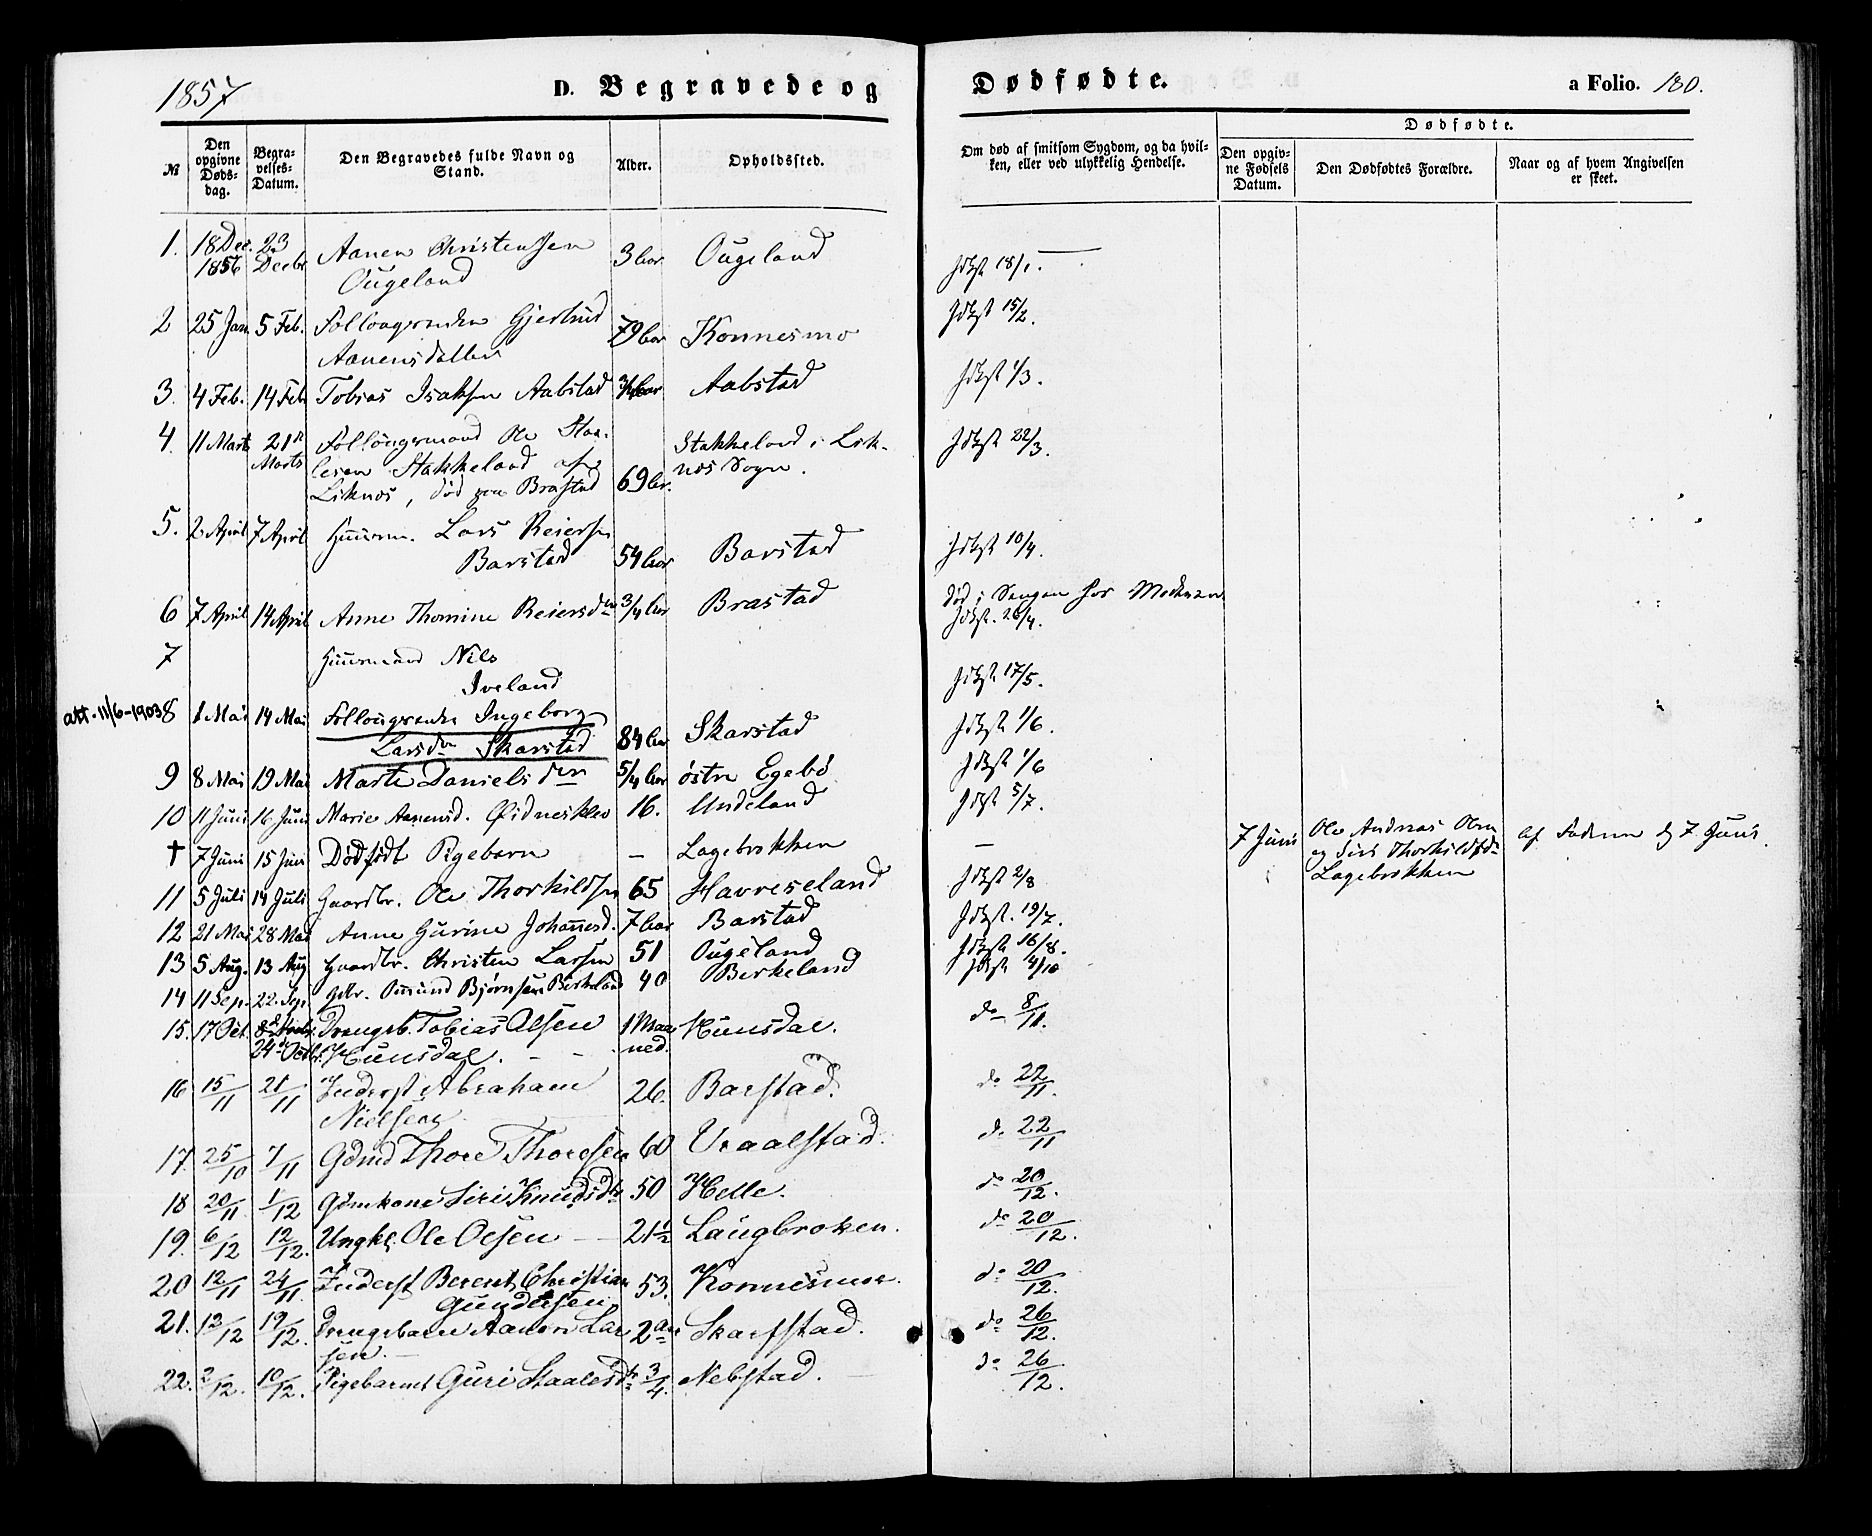 1857
D. Begravede og Dødfødte.
a Folio. 180.
№
Den opgivne Døds-dag.
Begra-velses-Datum.
Den Begravedes fulde Navn og Stand.
Alder.
Opholdssted.
Om død af smitsom Sygdom, og da hvil-
ken, eller ved ulykkelig Hendelse.
Dødfødte.
Den opgiv-
ne Fødsels
Datum.
Den Dødfødtes Forældre.
Naar og af hvem Angivelsen
er skeet.
1. 18 Dec. 1856 23 Decbr Aanen Christensen Ougeland 3 Ougeland 18/1.
2 25 Jan. 5 Feb. Gjertrud Aanensdatter 79 Konnesmo 15/2.
3. 4 Feb. 14 Feb Tobias Isaksen Aabstad 3/4 Aabstad 1/3.
4. 11 Marts 21 Marts Ole Staa-
lesen Stakkeland af
Liknes, død paa Brastad 69 Stakkeland i Lik-
nes Sogn. 22/3.
5. 2 April 7 April Huusm. Lars Reiersen
Barstad 54 Barstad 10/4.
6 7 April 14 April Anne Thomine Reiersd 3/4 Brastad død i Sengen hos Moderen
26/4.
7 Huusmand Nils
Iveland 17/5.
att. 11/6-1903 8 1 Mai 14 Mai Ingeborg
Larsd Skarstad 84 Skarstad 1/6.
9 8 Mai 19 Mai Marte Daniels den 5/4 østre Egebø 1/6
10 11 Juni 16 Juni Marie Aanensd. Øidnesklev 16. Undeland 5/7.
† 7 Juni 15 Juni Dødfødt Pigebarn — Lagebrokken — 7 Juni Ole Andreas Olsen
og Siri
Lagebrokken af Faderen d 7 Juni.
11 5 Juli 14 Juli Gaardbr. Ole Thorkildsen 65 Havreseland 2/8
12 21 Mai 28 Mai Anne Gurine Johannesd. 7 Barstad 19/7.
13 5 Aug. 13 Aug Gaardbr. Christen Larsen 51 Ougeland 16/8.
14 11 Sep. 22. Sep. Gdbr. Omund Bjørnsen Birkeland 40 Birkeland 4/10
15. 17 Oct. 24 Octb. Drengeb. Tobias Olsen
Hunsdal. 1 Maa-
ned. Hunsdal. do 8/11.
16 15/11 21/11 Inderst Abraham
Nielsen 26. Barstad. do 22/11.
17. 25/10 7/11 Gdmd Thore Thoresen 60 Vraalstad. do 22/11
18 20/11. 1/12 Gdmkone Siri Knudsdtr 50 Helle. do 20/12.
19. 6/12 12/12. Ungkl. Ole Olsen 21½ Laugbroken. do 20/12.
20 12/11 24/11. Inderst Berent Christian
Gundersen 53. Konnesmoe. do 20/12.
21. 12/12 19/12. Drengebarn Aanen Lar
sen. 2 aar Skarstad. do 26/12.
22. 2/12. 10/12. Pigebarnet Guri Staalesdtr 3/4. Nebstad. do 26/12.